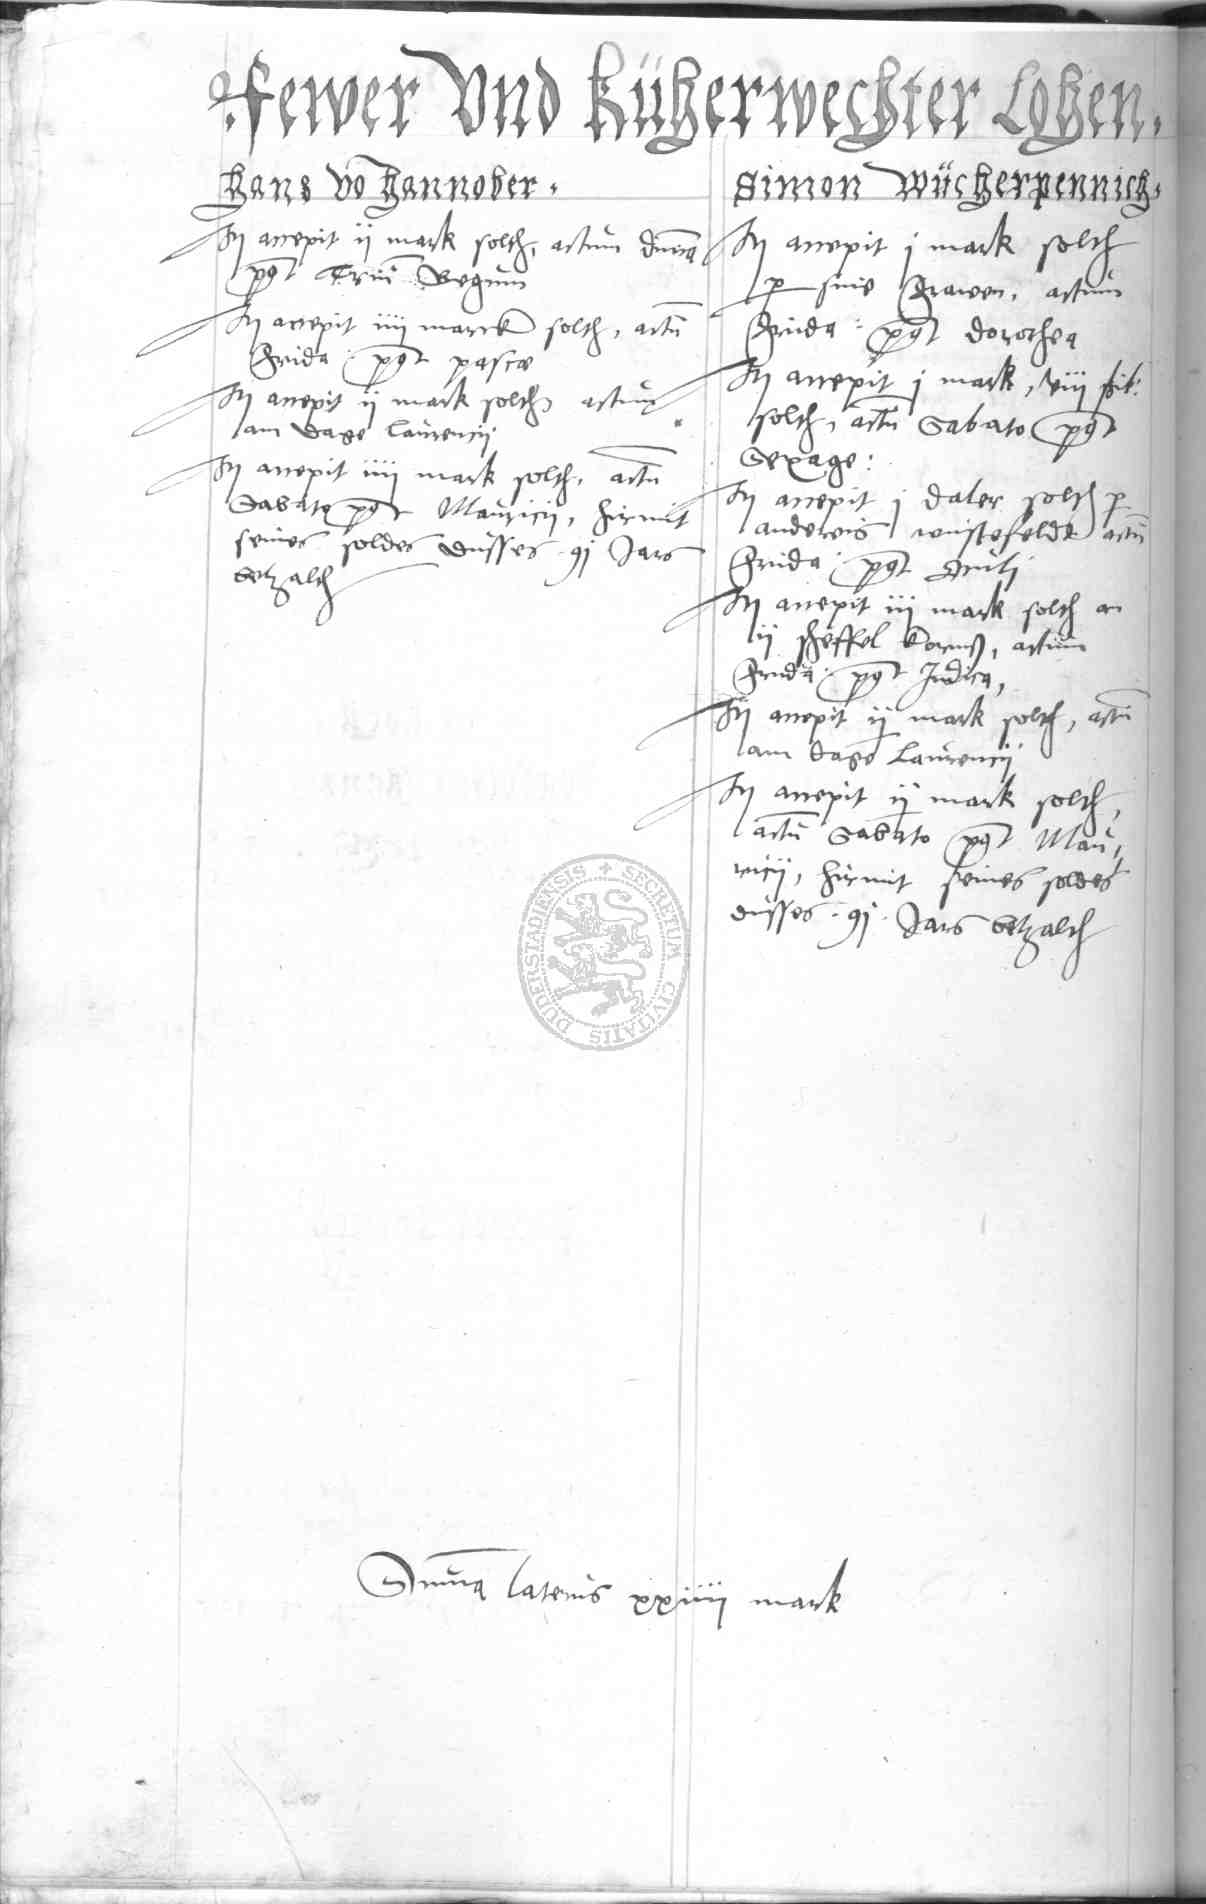 Fewer Vnd Küherwechter Lohen.
Hans vō Hannober.
Itj accepit ij mark solth, actum dnīca
pos̄t Triū Regum
Itj accepit iiij marck solth, actū
frida: pos̄t pascæ
Itj accepit ij mark solth actum
am dage Laurencij
Itj accepit iiij mark solth, actū
Sabato pos̄t Mauricij, hirmit
seines soldes dusses 91 Jars
betzalth
Simon Wücherpennich.
Itj accepit j mark solth
p suie frawen, actum
frida: pos̄t dorothea
Itj accepit j mark, viij
solth, actū Sabato pos̄t
Sexage:
Itj accepit j daler solth p
anderwis wustefeldt actū
frida: pos̄t
Itj accepit iij mark solth an
ij scheffel korns, actum
frida: pos̄t Judica,
Itj accepit ij mark solth, actū
am dage Laurencij
Itj accepit ij mark solth,
actū Sabato pos̄t Mau,
ricij, hirmit seines soldes
dusses 91 Jars betzalth
SECRETUM CIVITATIS DUDERSTADIENSIS
Summa lateris xxiiij mark